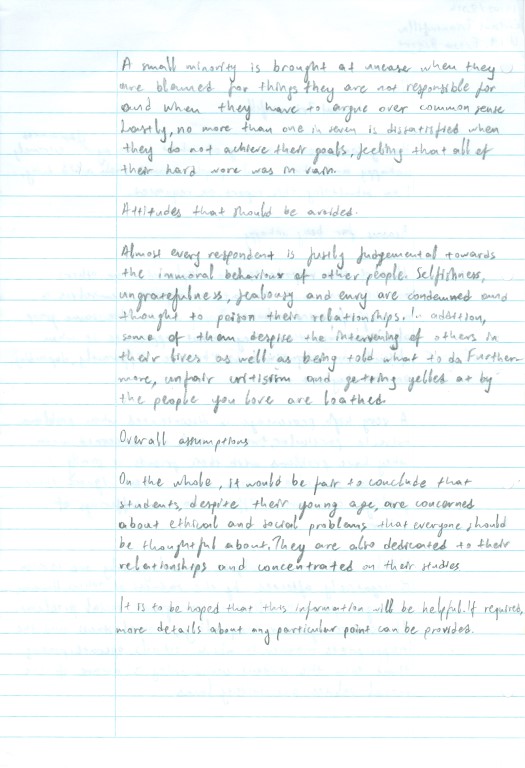 A small minority is brought at unease when they
are blamed for things they are not responsible for
and when they have to argue over common sense
Lastly, no more than one in seven is dissatisfied when
they do not achieve their goals, feeling that all of
their hard wore was in vain.
Attitudes that should be avoided.
Almost every respondent is justly judgemental towards
the immoral behaviour of other people. Selfishness,
ungratefulness, jealousy and envy are condemned and
thought to poison their relationships. In addition,
some of them despise the intervening of others in
their lives as well as being told what to do. Further-
more, unfair critisism and getting yelled at by
the people you love are loathed
Overall assumptions
On the whole, it would be fair to conclude that
students, despite their young age, are concerned
about ethical and social problems that everyone should
be thoughtful about. They are also dedicated to their
relationships and concentrated on their studies
It is to be hoped that this information will be helpful. If required,
more details about any particular point can be provided.